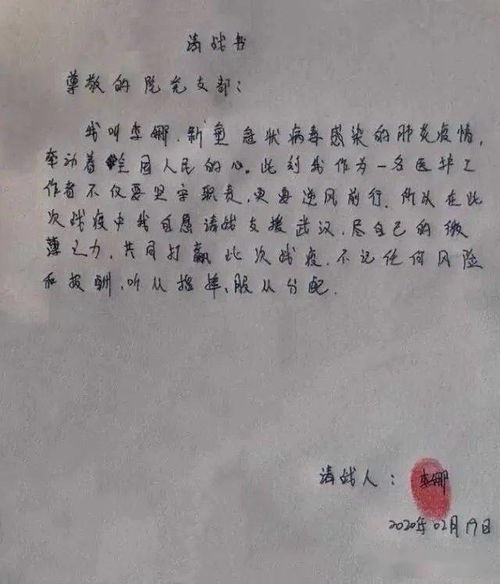 请战书
尊敬的院党支部：
我叫李娜，新型急状病毒感染的肺炎疫情，
牵动着全国人民的心。此刻我作为一名医护工
作者不仅要坚守职责，更要逆风前行。所以在此
次战疫中我自愿请战支援武汉，尽自己的微
薄之力，共同打赢此次战疫，不记任何风险
和报酬，听从指挥、服从分配．
请战人：李娜
2020年02月19日